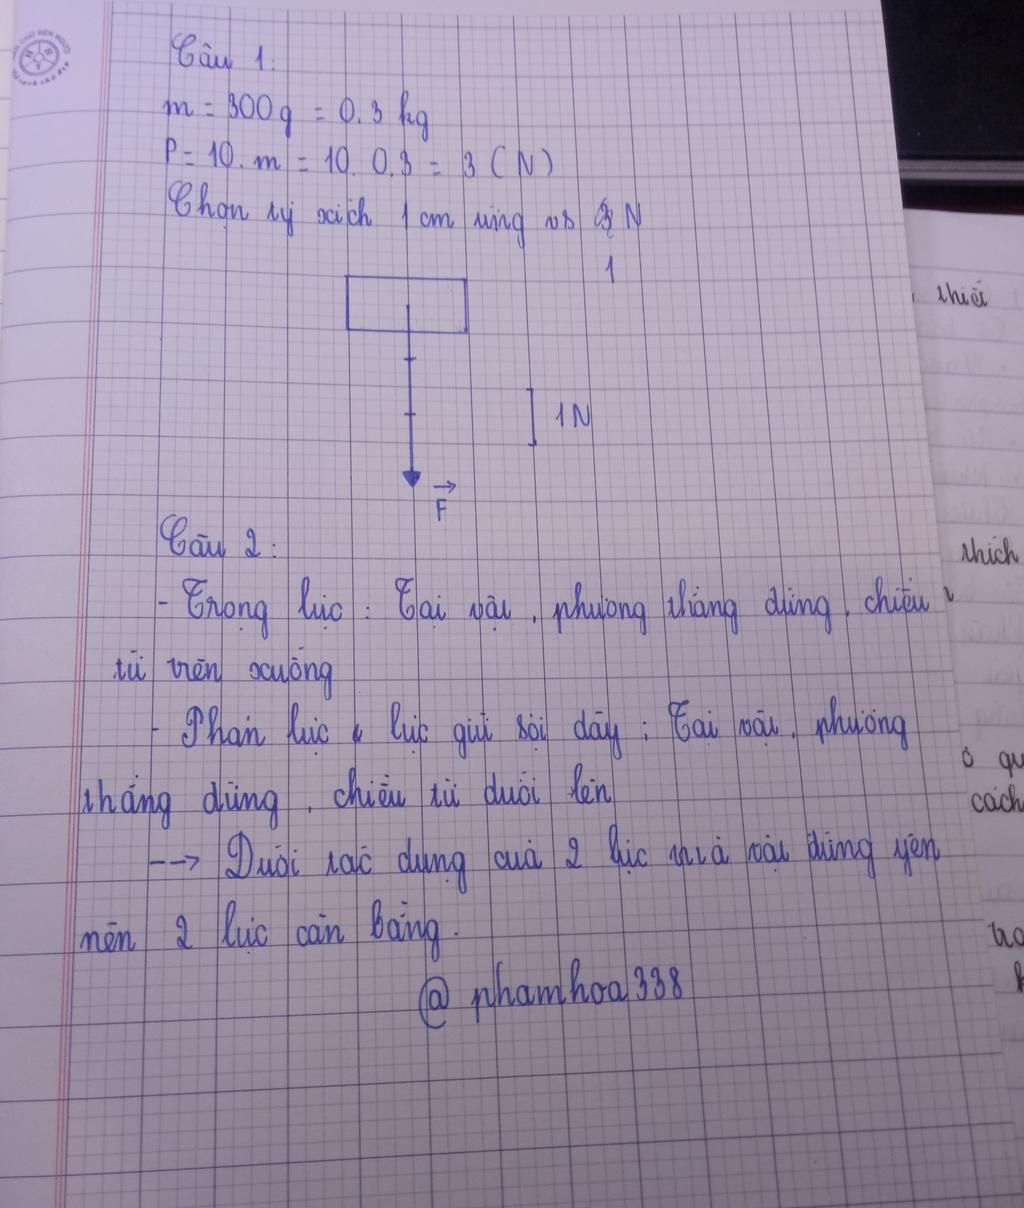 Câu 1:
m = 300g = 0.3 kg
P = 10. m = 10. 0,3 = 3 (N)
Chọn tỷ xích 1 cm ứng vs N
1
1N
F
Câu 2:
- Trọng lực : Tại vật, phương thẳng đứng, chiều
từ trên xuống
- Phản lực lực giữ sợi dây : Tại vật, phương
thẳng đứng, chiều từ dưới lên
--> Dưới tác dụng của 2 lực mà vật đứng yên
nên 2 lực cân bằng.
@ phamhoa338
thiết
thích
ó qu
cách